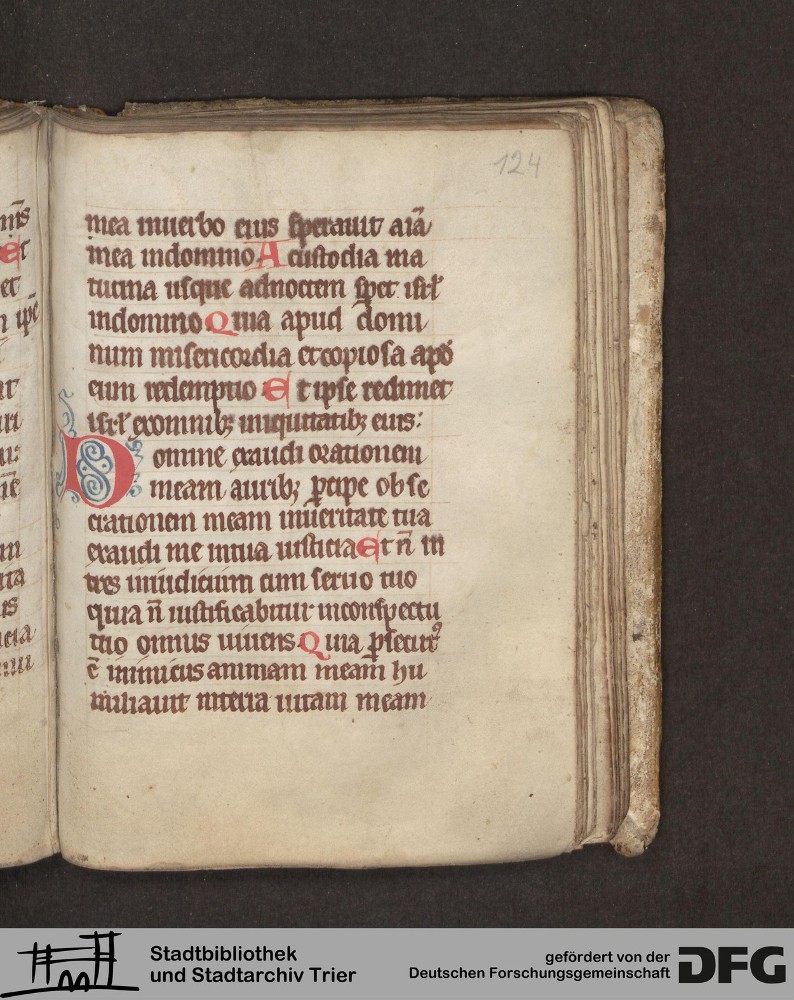 124
mea inuerbo eius sperauit aīā
mea indomino A custodia ma
tutina usque adnoctem spet isrł
indomino Quia apud domi
num misericordia etcopiosa apð
eum redemptio Et ipse redimet
isrł exomnibꝫ iniquitatibꝫ eius:
Domine exaudi orationem
meam auribꝫ ꝑcipe obse
crationem meam inueritate tua
exaudi me intua iusticia Et n̄ in
tres iniudicium cum seruo tuo
quia n̄ iustificabitur inconspectu
tuo omnis uiuens Quia ꝑsecutꝰ
ē inimicus animam meam hu
miliauit interra uitam meam
Stadtbibliothek
und Stadtarchiv Trier
gefördert von der
Deutschen Forschungsgemeinschaft
DFG